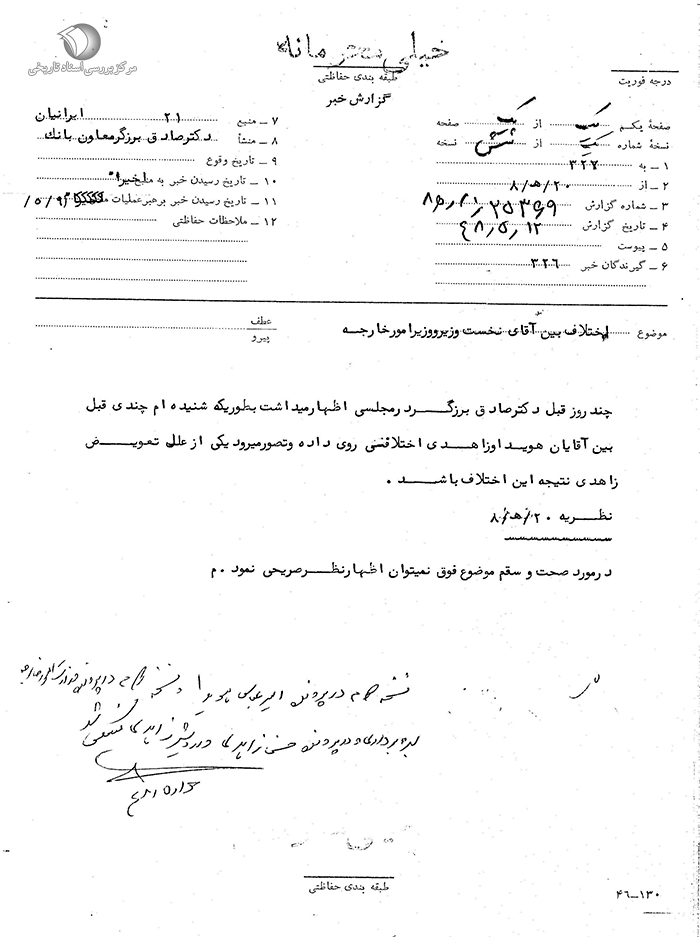 مرکز بررسی اسناد تاریخی
خیلی محرمانه
طبقه بندی حفاظتی
گزارش خبر
درجه فوریت
صفحهٔ یکم یک از یک صفحه
نسخهٔ شماره یک از شش نسخه
۱ ـ به ۳۲۲
۲ ـ از ۲۰/ه‍/۸
۳ ـ شماره گزارش
۴ ـ تاریخ گزارش ۴۸٫۵٫۱۲
۵ ـ پیوست
۶ ـ گیرندگان خبر ۳۲۶
۷ ـ منبع ۲۱ ایرانیان
۸ ـ منشأ دکترصادق برزگرمعاون بانک
۹ ـ تاریخ وقوع
۱۰ ـ تاریخ رسیدن خبر به منبع اخیرا"
۱۱ ـ تاریخ رسیدن خبر برهبر عملیات ۵/۹/
۱۲ ـ ملاحظات حفاظتی
موضوع اختلاف بین آقای نخست وزیرووزیرامورخارجه
عطف
پیرو
چند روز قبل دکترصادق برزگردرمجلسی اظهارمیداشت بطوریکه شنیده ام چندی قبل
بین آقایان هویداوزاهدی اختلافی روی داده وتصورمیرود یکی از علل تعویض
زاهدی نتیجه این اختلاف باشد .
نظریه ۲۰/ه‍/۸
درمورد صحت و سقم موضوع فوق نمیتوان اظهارنظرصریحی نمود .م
نسخه دوم در پرونده امیرعباس هویدا و نسخه
و در پرونده زاهدی اردشیر زاهدی
طبقه بندی حفاظتی
۴۶ـ۱۳۰